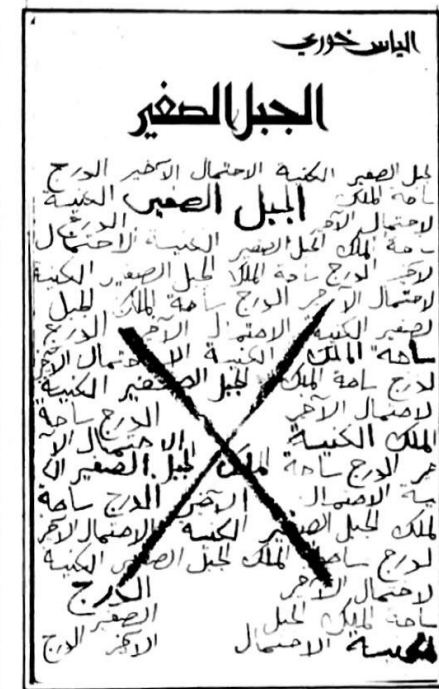 الياس خوري
الجبل الصغير
الجبل الصغير الكنيسة الاحتمال الأخير الدرج
ساحة الملك الجبل الصغير الكنيسة
الاحتمال الأخير الدرج
ساحة الملك الجبل الصغير الكنيسة الاحتمال
الأخير الدرج ساحة الملك الجبل الصغير الكنيسة
الاحتمال الآخر الدرج ساحة الملك الجبل
الصغير الكنيسة الاحتمال الأخير الدرج
ساحة الملك الكنيسة الاحتمال الآخر
الدرج ساحة الملك الجبل الصغير الكنيسة
الاحتمال الآخر الدرج ساحة
الملك الكنيسة الاحتمال الآ
خر الدرج ساحة الملك الجبل الصغير الك
ية الاحتمال الآخر الدرج ساحة
الملك الجبل الصغير الكنيسة الاحتمال الآخر
الدرج ساحة الملك الجبل الصغير الكنيسة
الاحتمال الآخر الدرج
ساحة الملك الجبل الصغير
الكنيسة الاحتمال الآخر الدرج